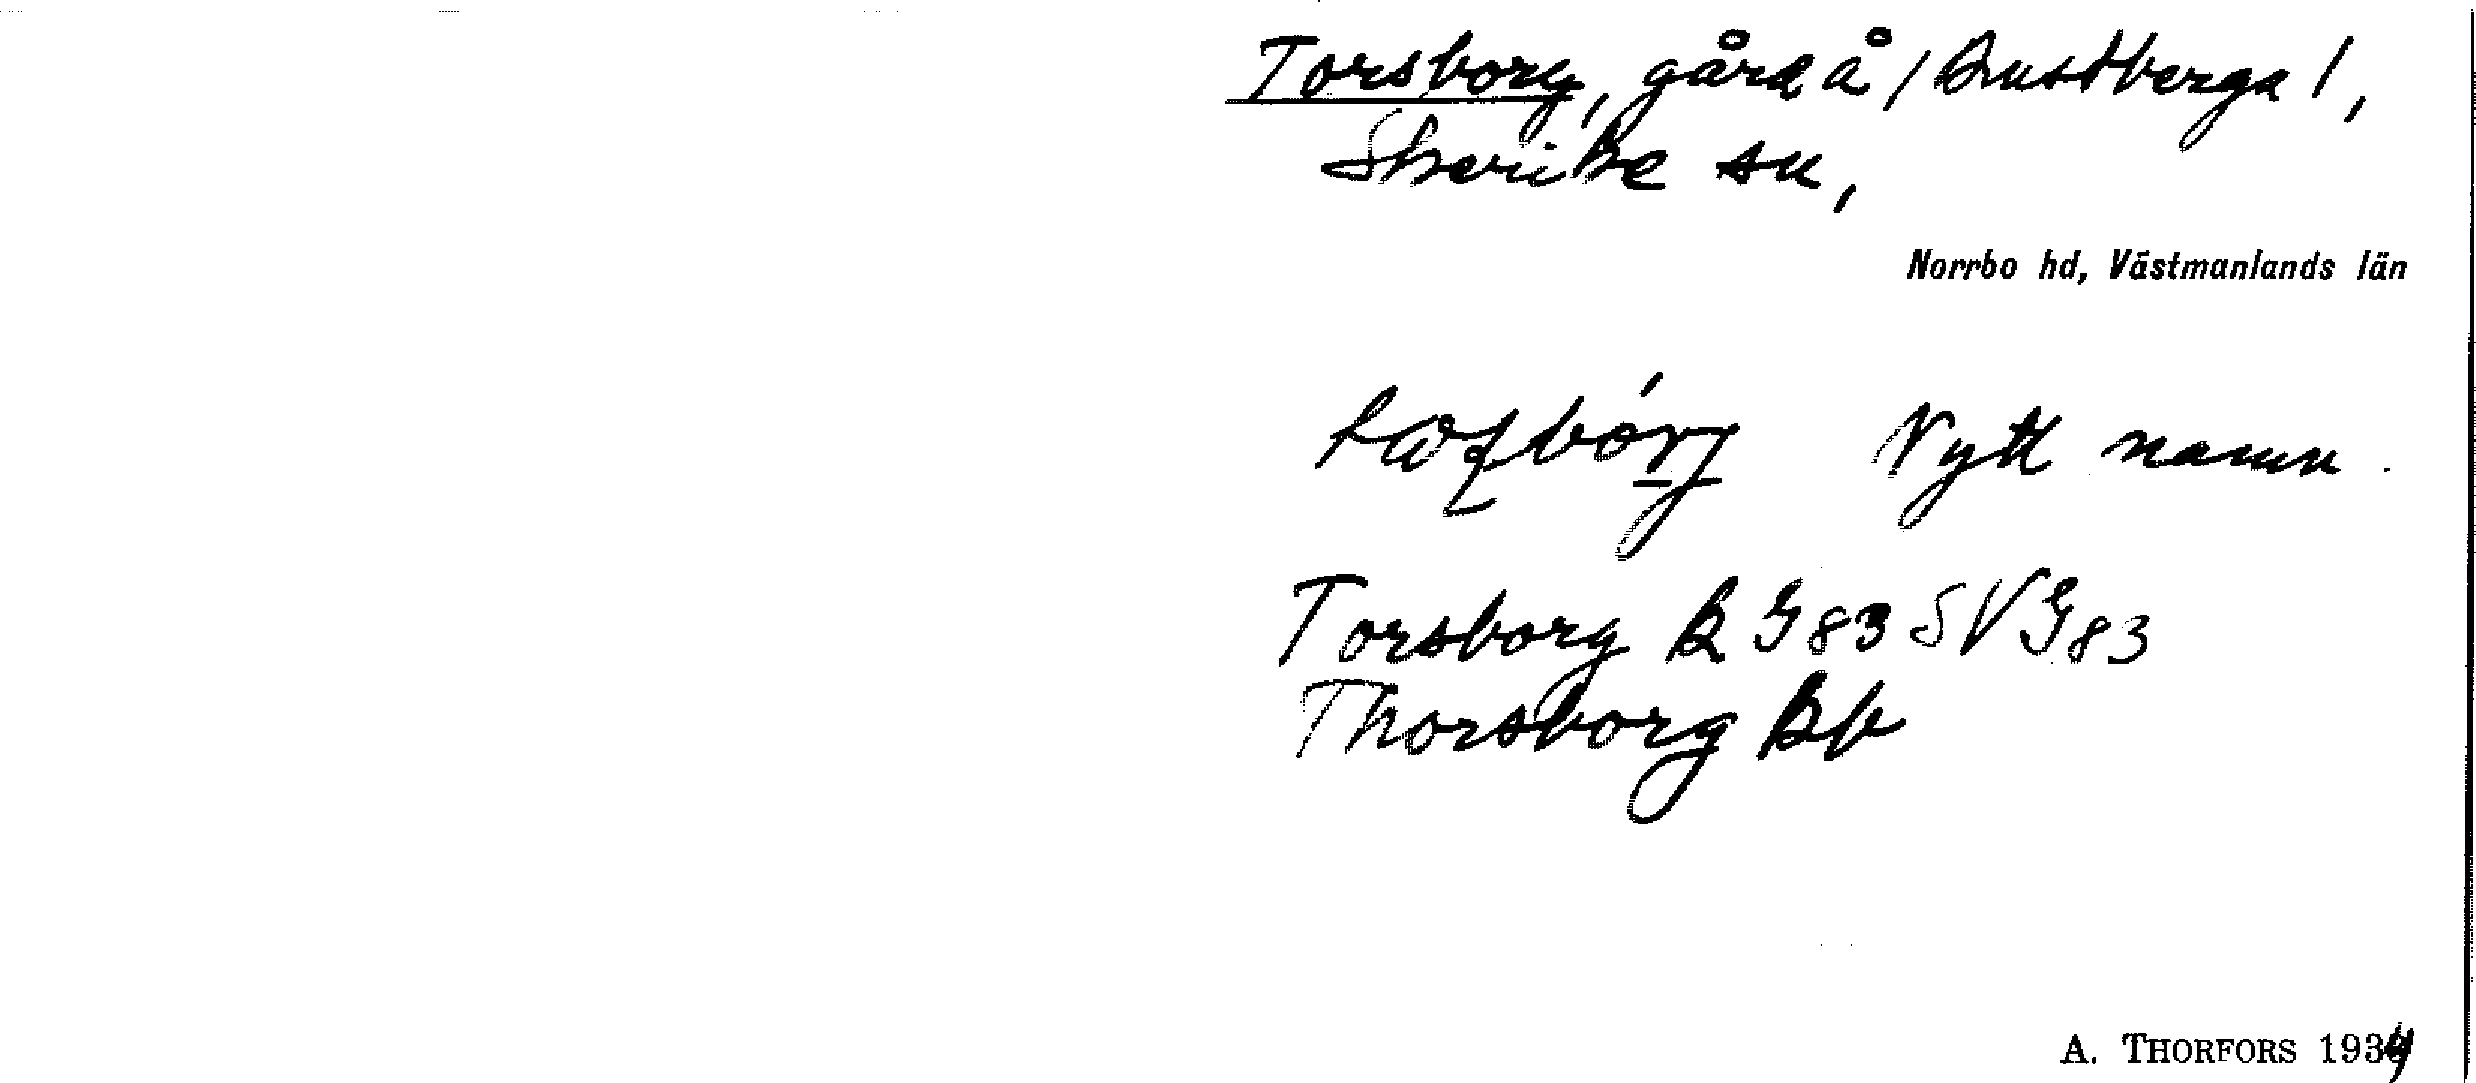 Torsborg, gård å /Brustberga/,
Skerike sn,
Norrbo hd, Västmanlands län
Nytt namn.
Torsborg R G 83 SV G83
Thorsborg Bb
A. THORFORS 1934